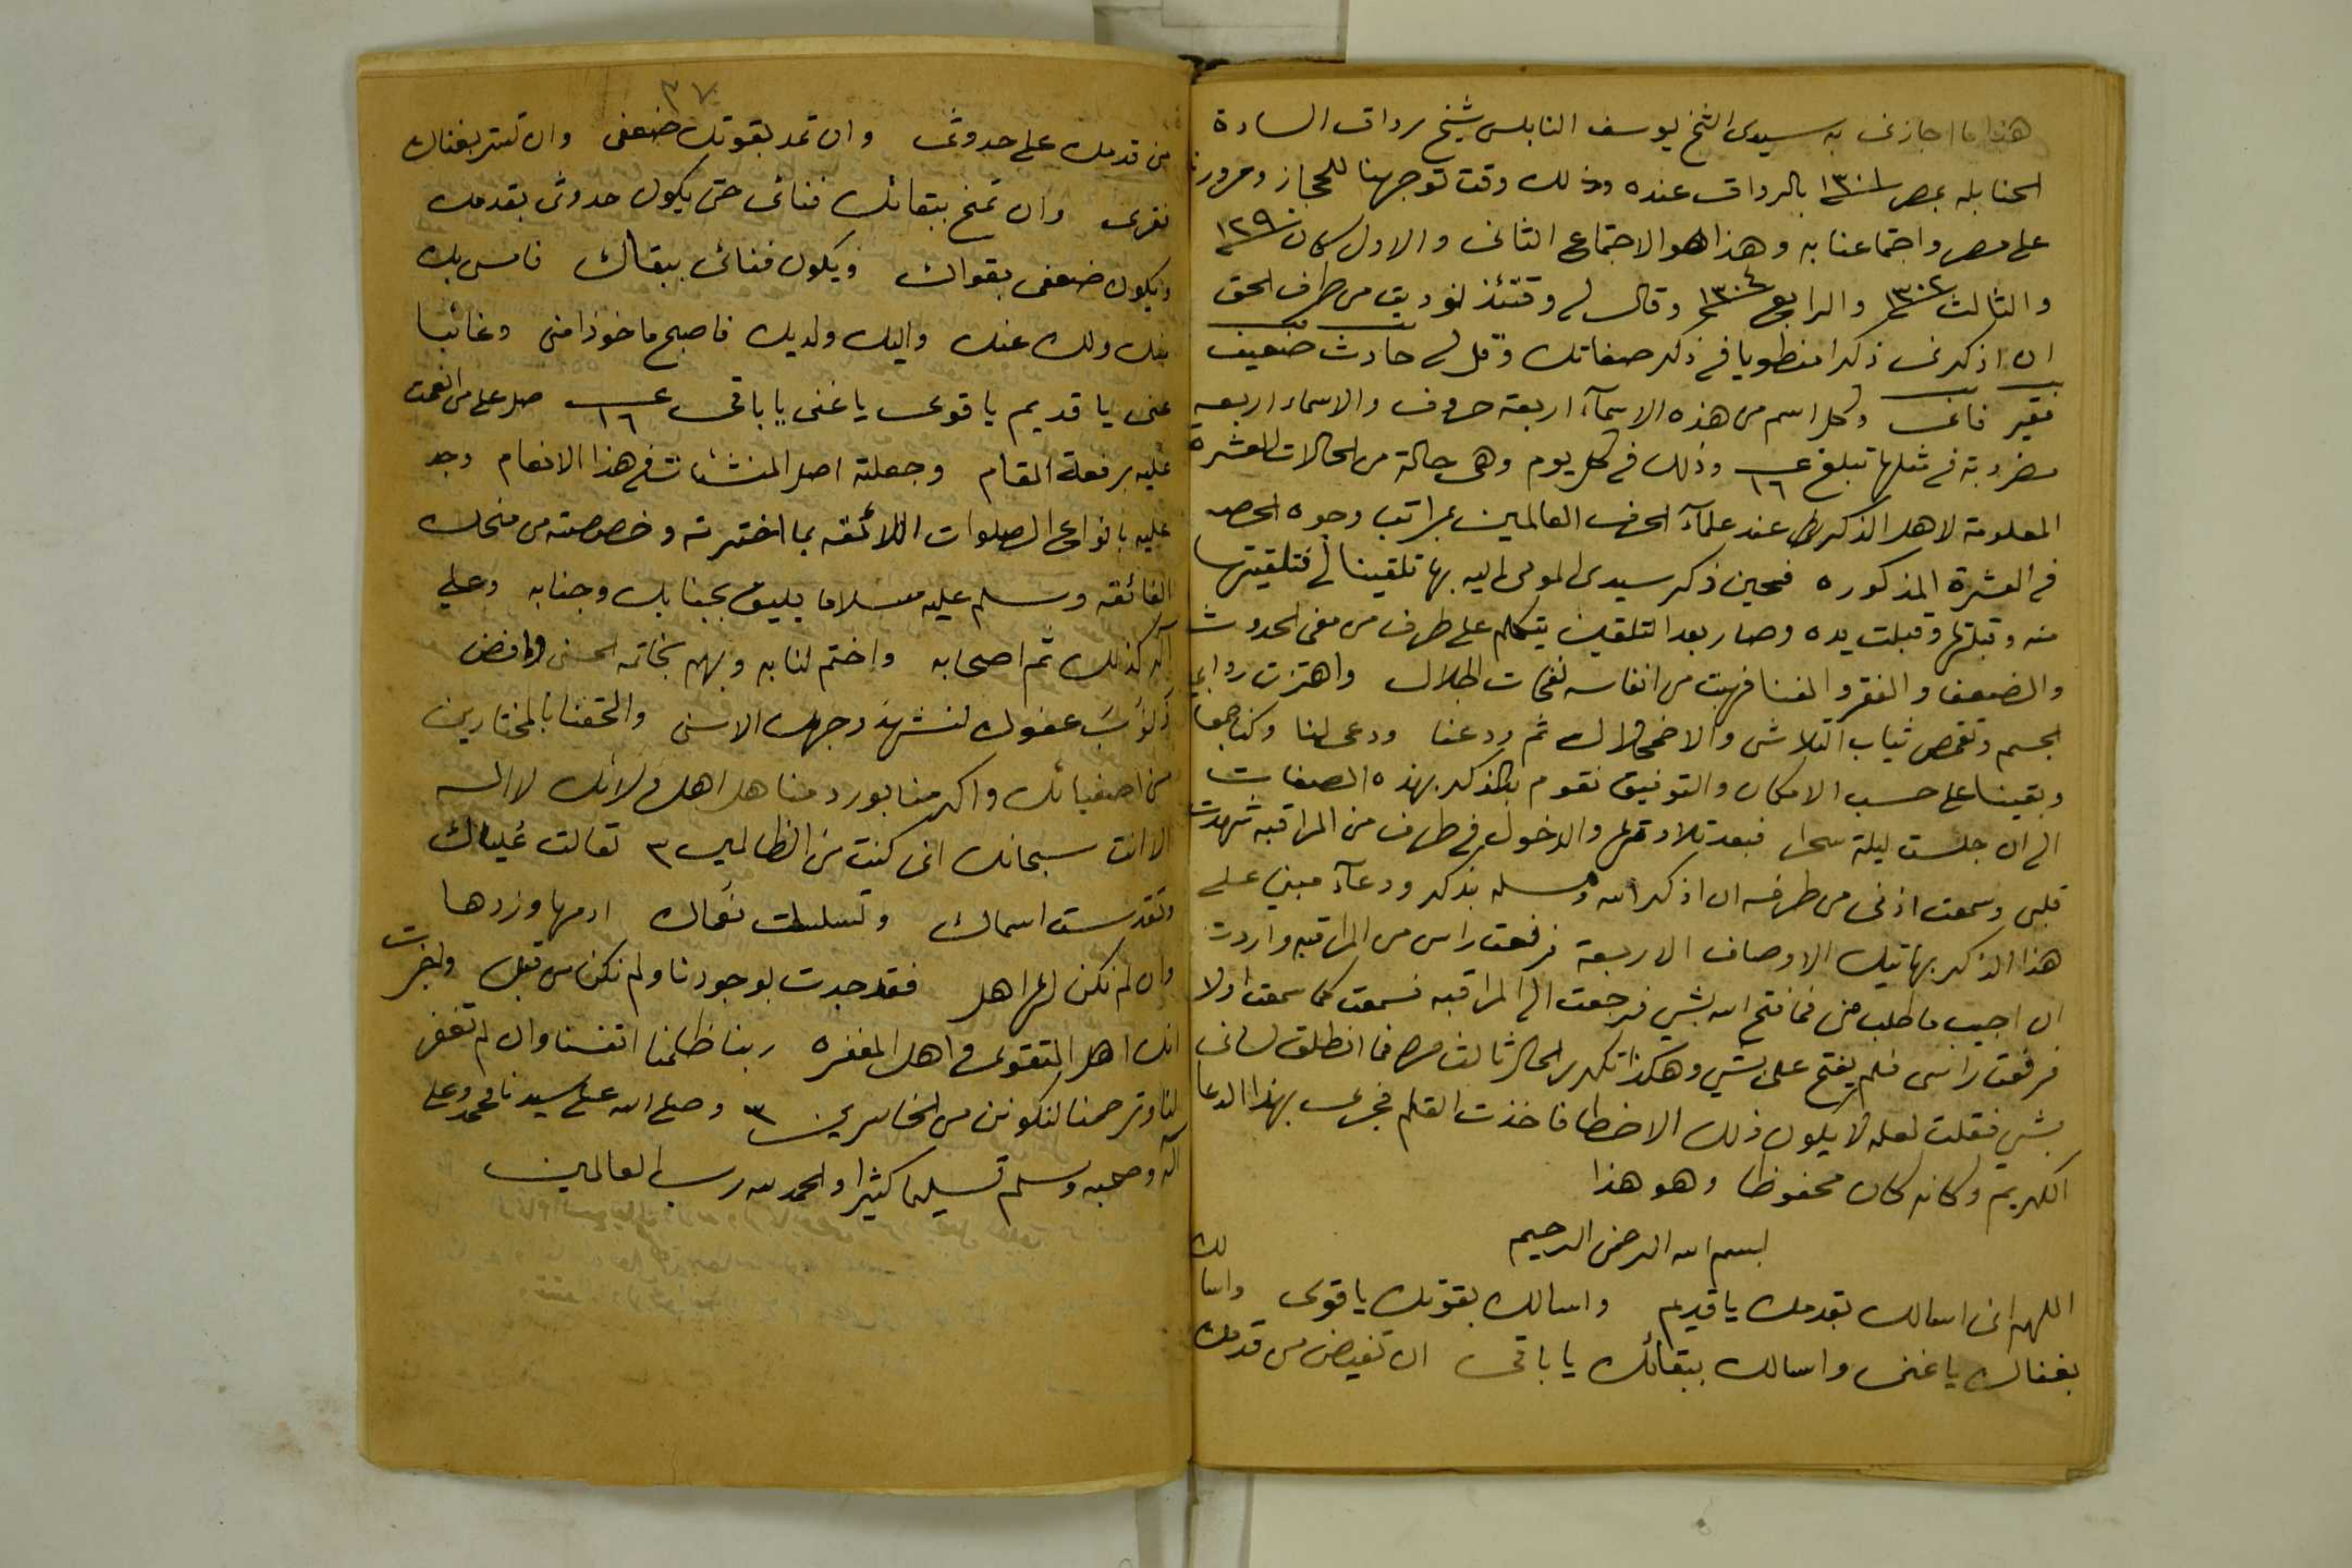 هذا ما اجازنى به سيدى الشيخ يوسف النابلسى شيخ رواق السادة
الحنابله بمصر ١٣٠١ بالرواق عنده وذلك وقت توجهنا للحجاز ومرورنا
على مصر واجتماعنا به وهذا هو الاجتماع الثانى والاول كان ١٢٩٠
والثالث ١٣٠٢ والرابع ١٣٠٤ وقال لى وقتئذ نوديت من طرف الحق
ان اذكرنى ذكرا منطويا فى ذكر صفاتك وقل لى حادث ضعيف
فقير فانى ولكل اسم من هذه الاسمآء اربعة حروف والاسماء اربعه
مضروبة فى مثلها تبلغ ١٦ وذلك فى كل يوم وهى حالة من الحالات العشرة
المعلومة لاهل الذكر عند علمآء الحرف العالمين بمراتب وجوه الحصر
فى العشرة المذكوره فحين ذكر سيدى المومى اليه بها تلقينا لى فتلقيتها
منه وقبلتها وقبلت يده وصار بعد التلقين يتكلم على طرف من معنى الحدوث
والضعف والفقر والفنا فهبت من انفاسه نفحات الجلال واهتزت
الجسم وتقمص ثياب التلاشى والاضمحلال ثم ودعنا ودعى لنا وكنا جمعا
وبقينا على حسب الامكان والتوفيق نقوم بالذكر بهذه الصفات
الى ان جلست ليلة سحرا فبعد تلاوتها والدخول فى طرف من المراقبه شهدت
قلبى وسمعت اذنى من طرفه ان اذكر الله وسله بذكر ودعآء مبنى على
هذا الذكر بهاتيك الاوصاف الاربعة فرفعت راسى من المراقبه واردت
ان اجيب ما طلب منى فما فتح الله بشى فرجعت الى المراقبه فسمعت كما سمعت اولا
فرفعت راسى فلم يفتح على بشى وهكذا تكرر الحال ثالث مرة فما انطلق لسانى
بشى فقلت لعله لا يكون ذلك الا خطا فاخذت القلم فجرى بهذا الدعا
الكريم وكانه كان محفوظا وهو هذا
بسم الله الرحمن الرحيم
اللهم انى اسالك بقدمك يا قديم واسالك بقوتك يا قوى واسالك
بغناك يا غنى واسالك ببقائك يا باقى ان تفيض من قدمك
٣٧
من قدمك على حدوثى وان تمد بقوتك ضعفى وان تستر بغناك
فقرى وان تمنح ببقائك فنائى حتى يكون حدوثى بقدمك
ويكون ضعفى بقواك ويكون فنائى ببقاك فامسى بك
منك ولك عنك واليك ولديك فاصبح ماخوذا منى وغائبا
عنى يا قديم يا قوى يا غنى يا باقى ١٦ صل على من انعمت
عليه برفعة المقام وجعلته اصل المنشئات فى هذا الانعام وجد
عليه بانواع الصلوات اللائقه بما اخترته وخصصته من منحك
الفائقه وسلم عليه سلاما يليق بجنابك وجنابه وعلى
آله كذلك ثم اصحابه واختم لنا به وبهم بخاتمه الحسنى وافض
عفوك لنشهد وجهك الاسنى والحقنا بالمختارين
من اصفيائك واكرمنا بورد مناهل اهل ولائك لا اله
الا انت سبحانك انى كنت من الظالمين ٣ تعالت علياك
وتقدست اسماك وتسلسلت نعماك ادمها وزدها
وان لم نكن لها اهل فقد جدت بوجودنا ولم نكن من قبل
انك اهل التقوى واهل المغفره ربنا ظلمنا انفسنا وان لم تغفر
لنا وترحمنا لنكونن من الخاسرين ٣ وصلى الله على سيدنا محمد وعلى
اله وصحبه وسلم تسليما كثيرا والحمد لله رب العالمين